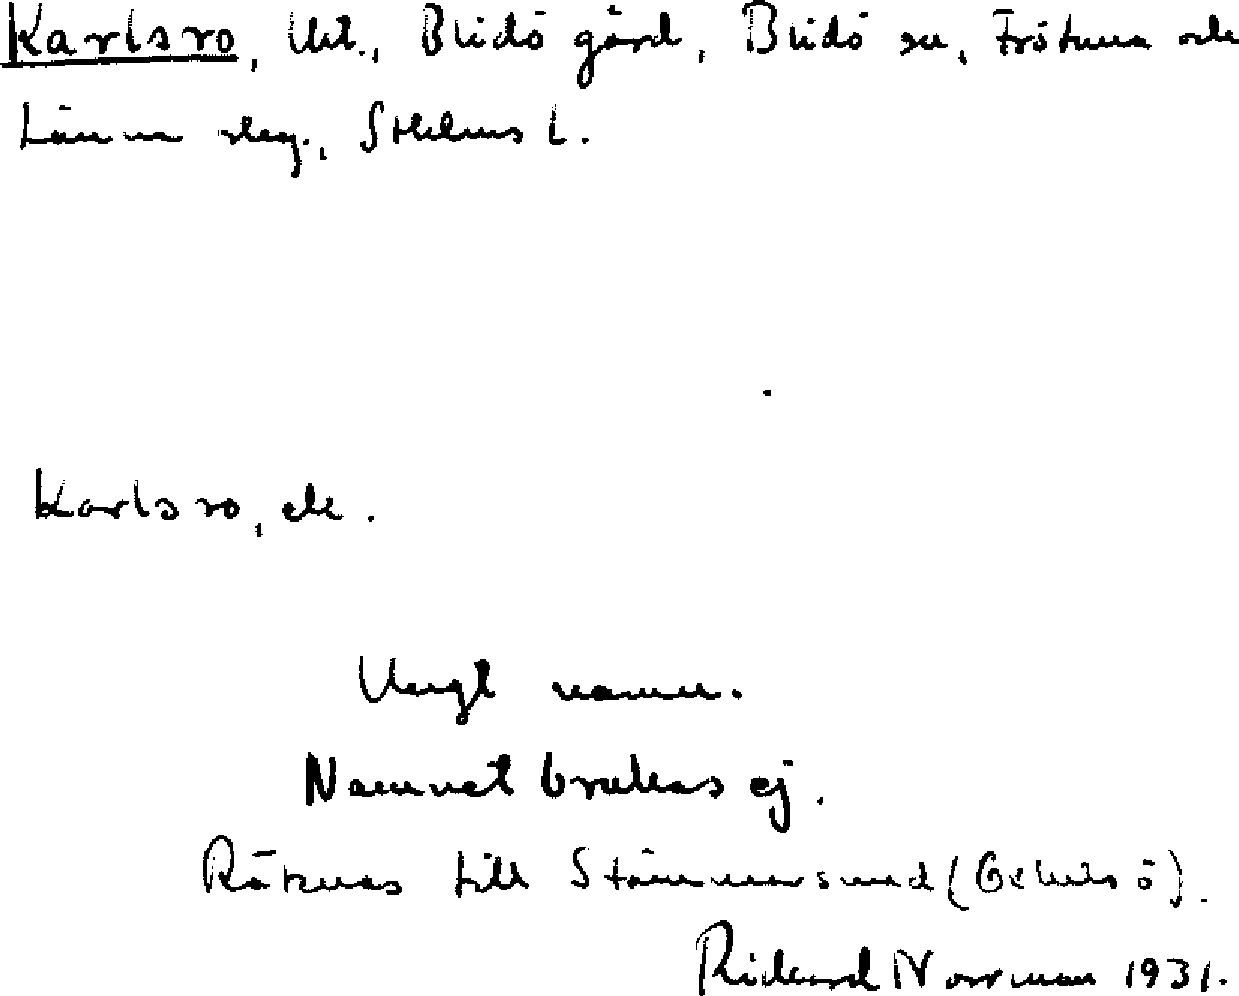 Karlsro, Utl., Blidö gård, Blidö sn, Frötuna och
Länna skg., Sthlms l.
Karlsro, de.
Ungt namn.
Namnet brukas ej.
Räknas till Stämmarsund (Oxhalsö).
Rickard Norrman 1931.